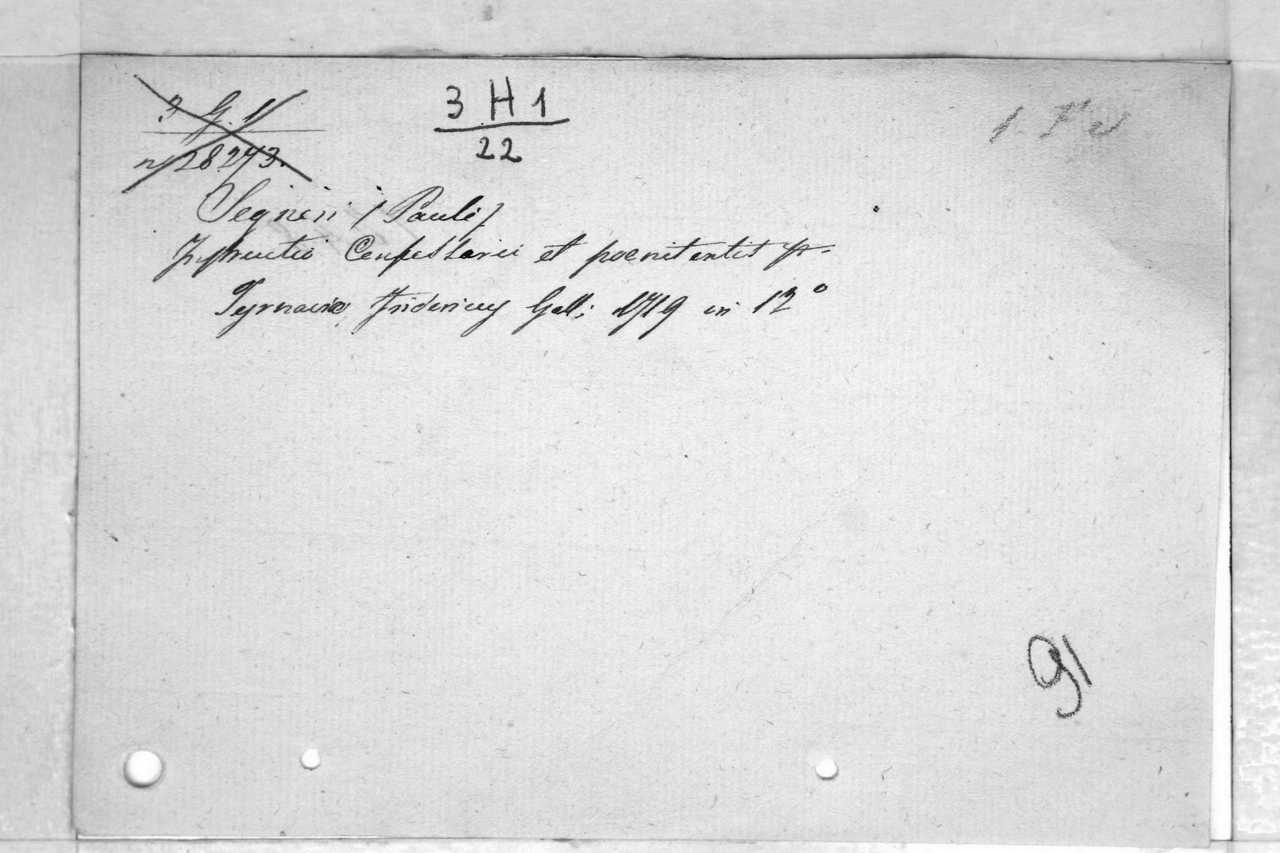 3 G. 1
n 28243.
3 H 1
22
Segneri (Pauli)
Instructio Confessarii et poenitentis
Tyrnaviæ Fridericus Gall; 1719 in 12°
91